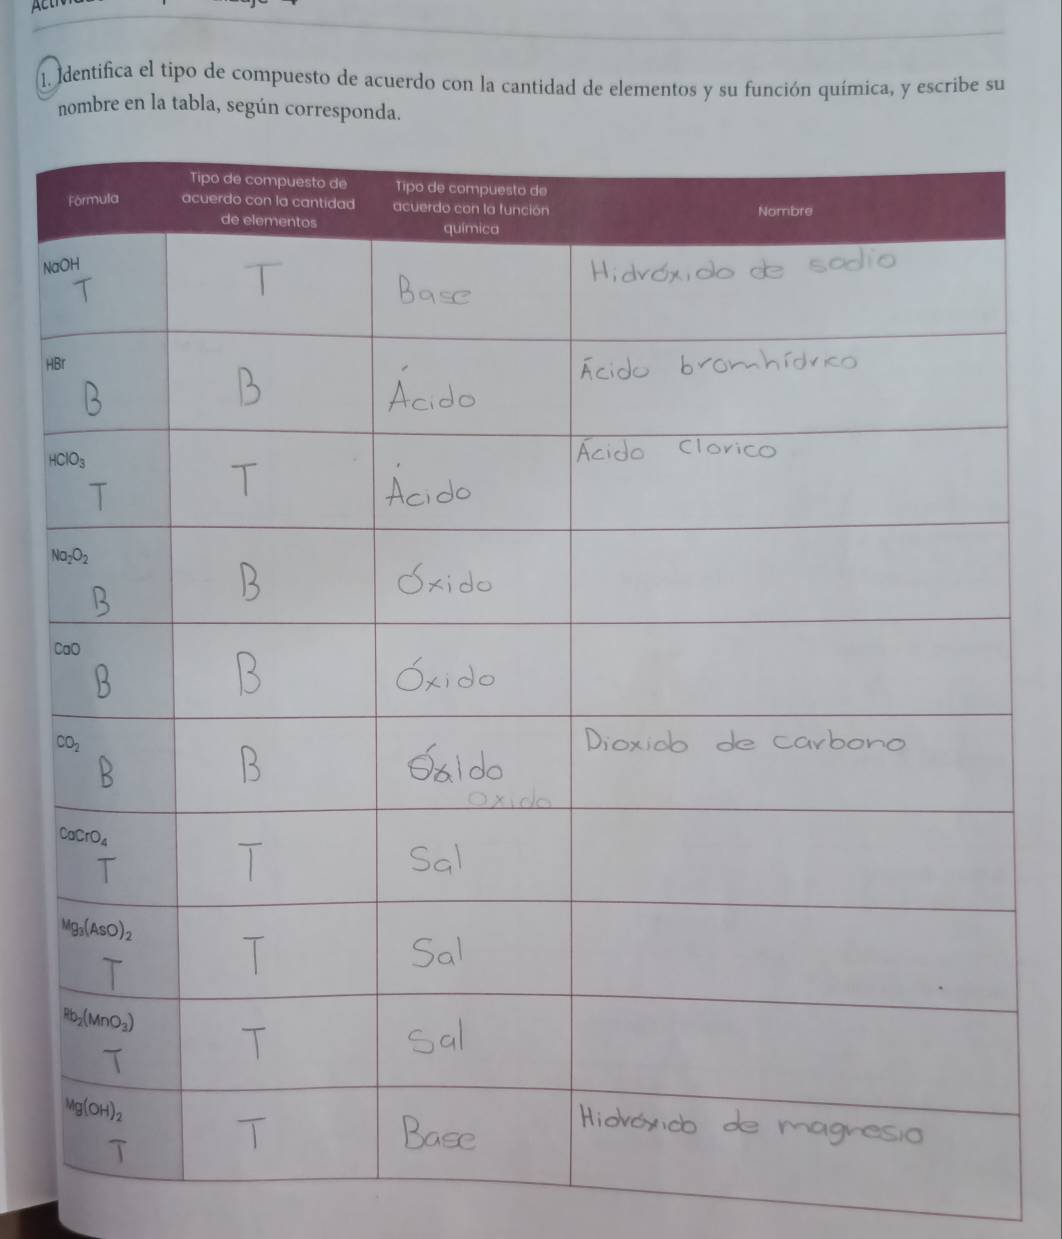 1. Identifica el tipo de compuesto de acuerdo con la cantidad de elementos y su función química, y escribe su
nombre en la tabla, según corresponda.
Fórmula
Tipo de compuesto de
acuerdo con la cantidad
de elementos
Tipo de compuesto de
acuerdo con la función
química
Nombre
NaOH
T
T
Base
Hidróxido de sodio
HBr
B
B
Ácido
Ácido bromhídrico
HClO₃
T
T
Ácido
Ácido Clorico
Na₂O₂
B
B
Óxido
CaO
B
B
Óxido
CO₂
B
B
oxido
Dioxido de carbono
CaCrO₄
T
T
Sal
Mg₃(AsO)₂
T
T
Sal
Rb₂(MnO₃)
T
T
Sal
Mg(OH)₂
T
T
Base
Hidróxido de magnesio